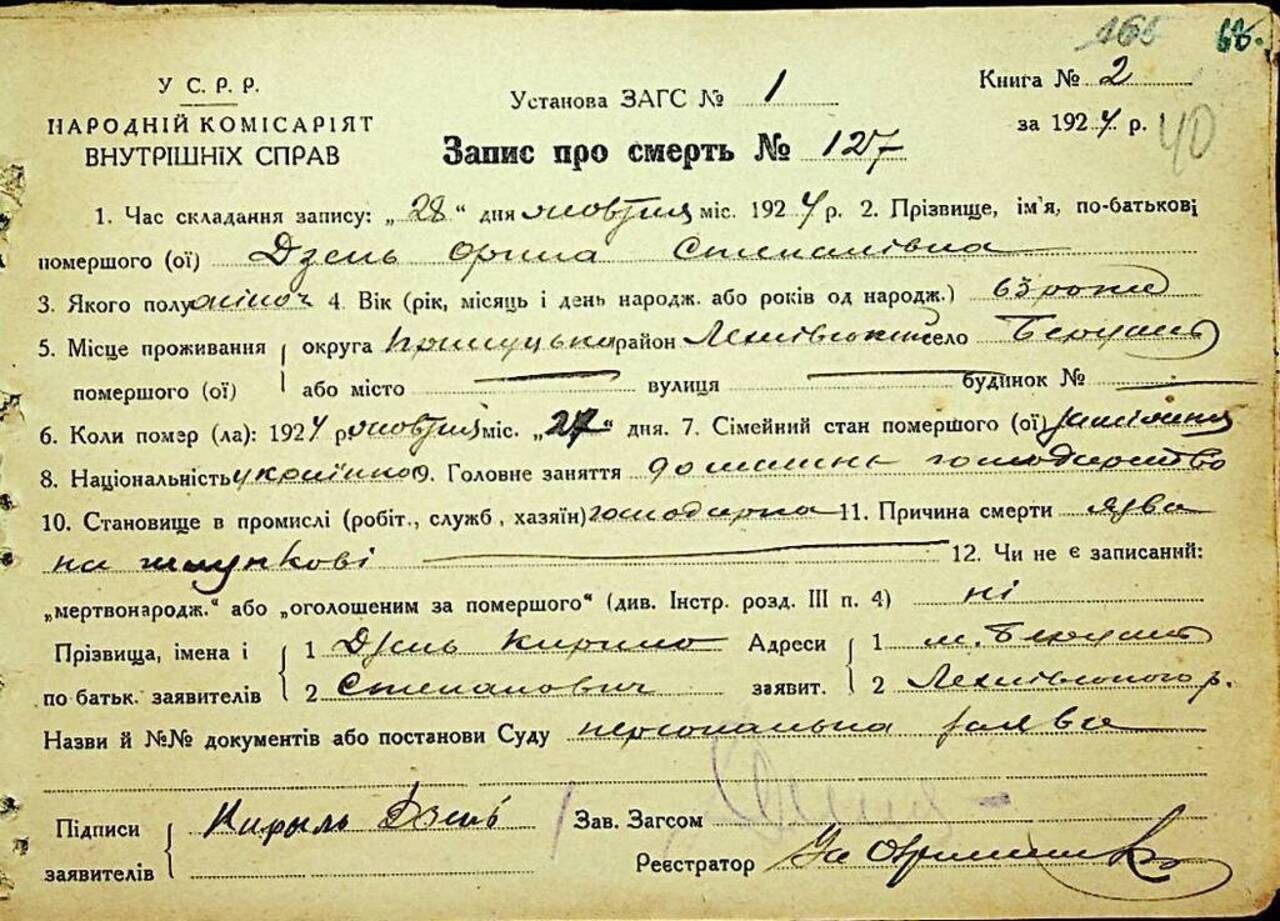 165 68.
У С. Р. Р.
НАРОДНІЙ КОМІСАРІЯТ
ВНУТРІШНІХ СПРАВ
Установа ЗАГС № 1
Книга № 2
за 1924 р. 40
Запис про смерть № 127
1. Час складання запису: „28“ дня жовтня міс. 1924 р. 2. Прізвище, ім'я, по-батькові
помершого (ої) Дзень Орина Степанівна
3. Якого полу жіноч 4. Вік (рік, місяць і день народж. або років од народж.) 63 роки
5. Місце проживання округа Прилуцька район село
помершого (ої) або місто вулиця будинок №
6. Коли помер (ла): 1924 р жовтня міс. „27“ дня. 7. Сімейний стан помершого (ої)
8. Національність українка 9. Головне заняття домашнє господарство
10. Становище в промислі (робіт., служб, хазяїн) господарка 11. Причина смерти язва
на шлункові 12. Чи не є записаний:
„мертвонародж.“ або „оголошеним за помершого“ (див. Інстр. розд. III п. 4) ні
Прізвища, імена і 1 Дзень Кирило Адреси 1 м.
по батьк. заявителів 2 Степанович заявит. 2 р.
Назви й №№ документів або постанови Суду персональна заява
Підписи Кирыль Дзень Зав. Загсом
заявителів Реєстратор